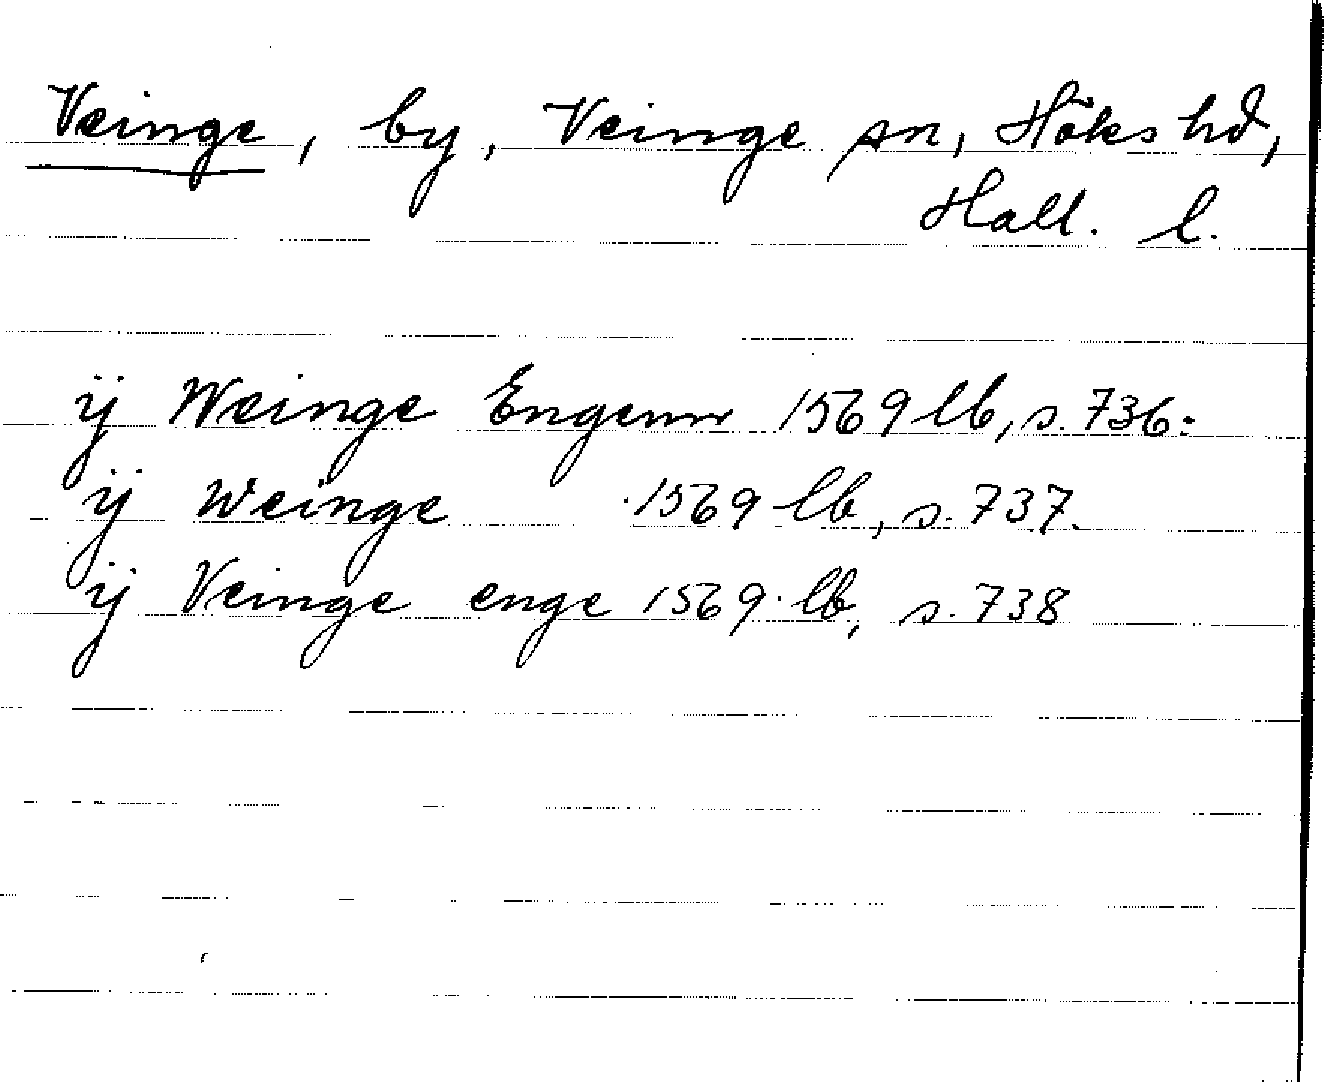 Veinge, by, Veinge sn, Höks hd,
Hall. l.
ij Weinge Engenn 1569 lb, s. 736.
ij Weinge 1569 lb, s. 737.
ij Veinge enge 1569 lb, s. 738